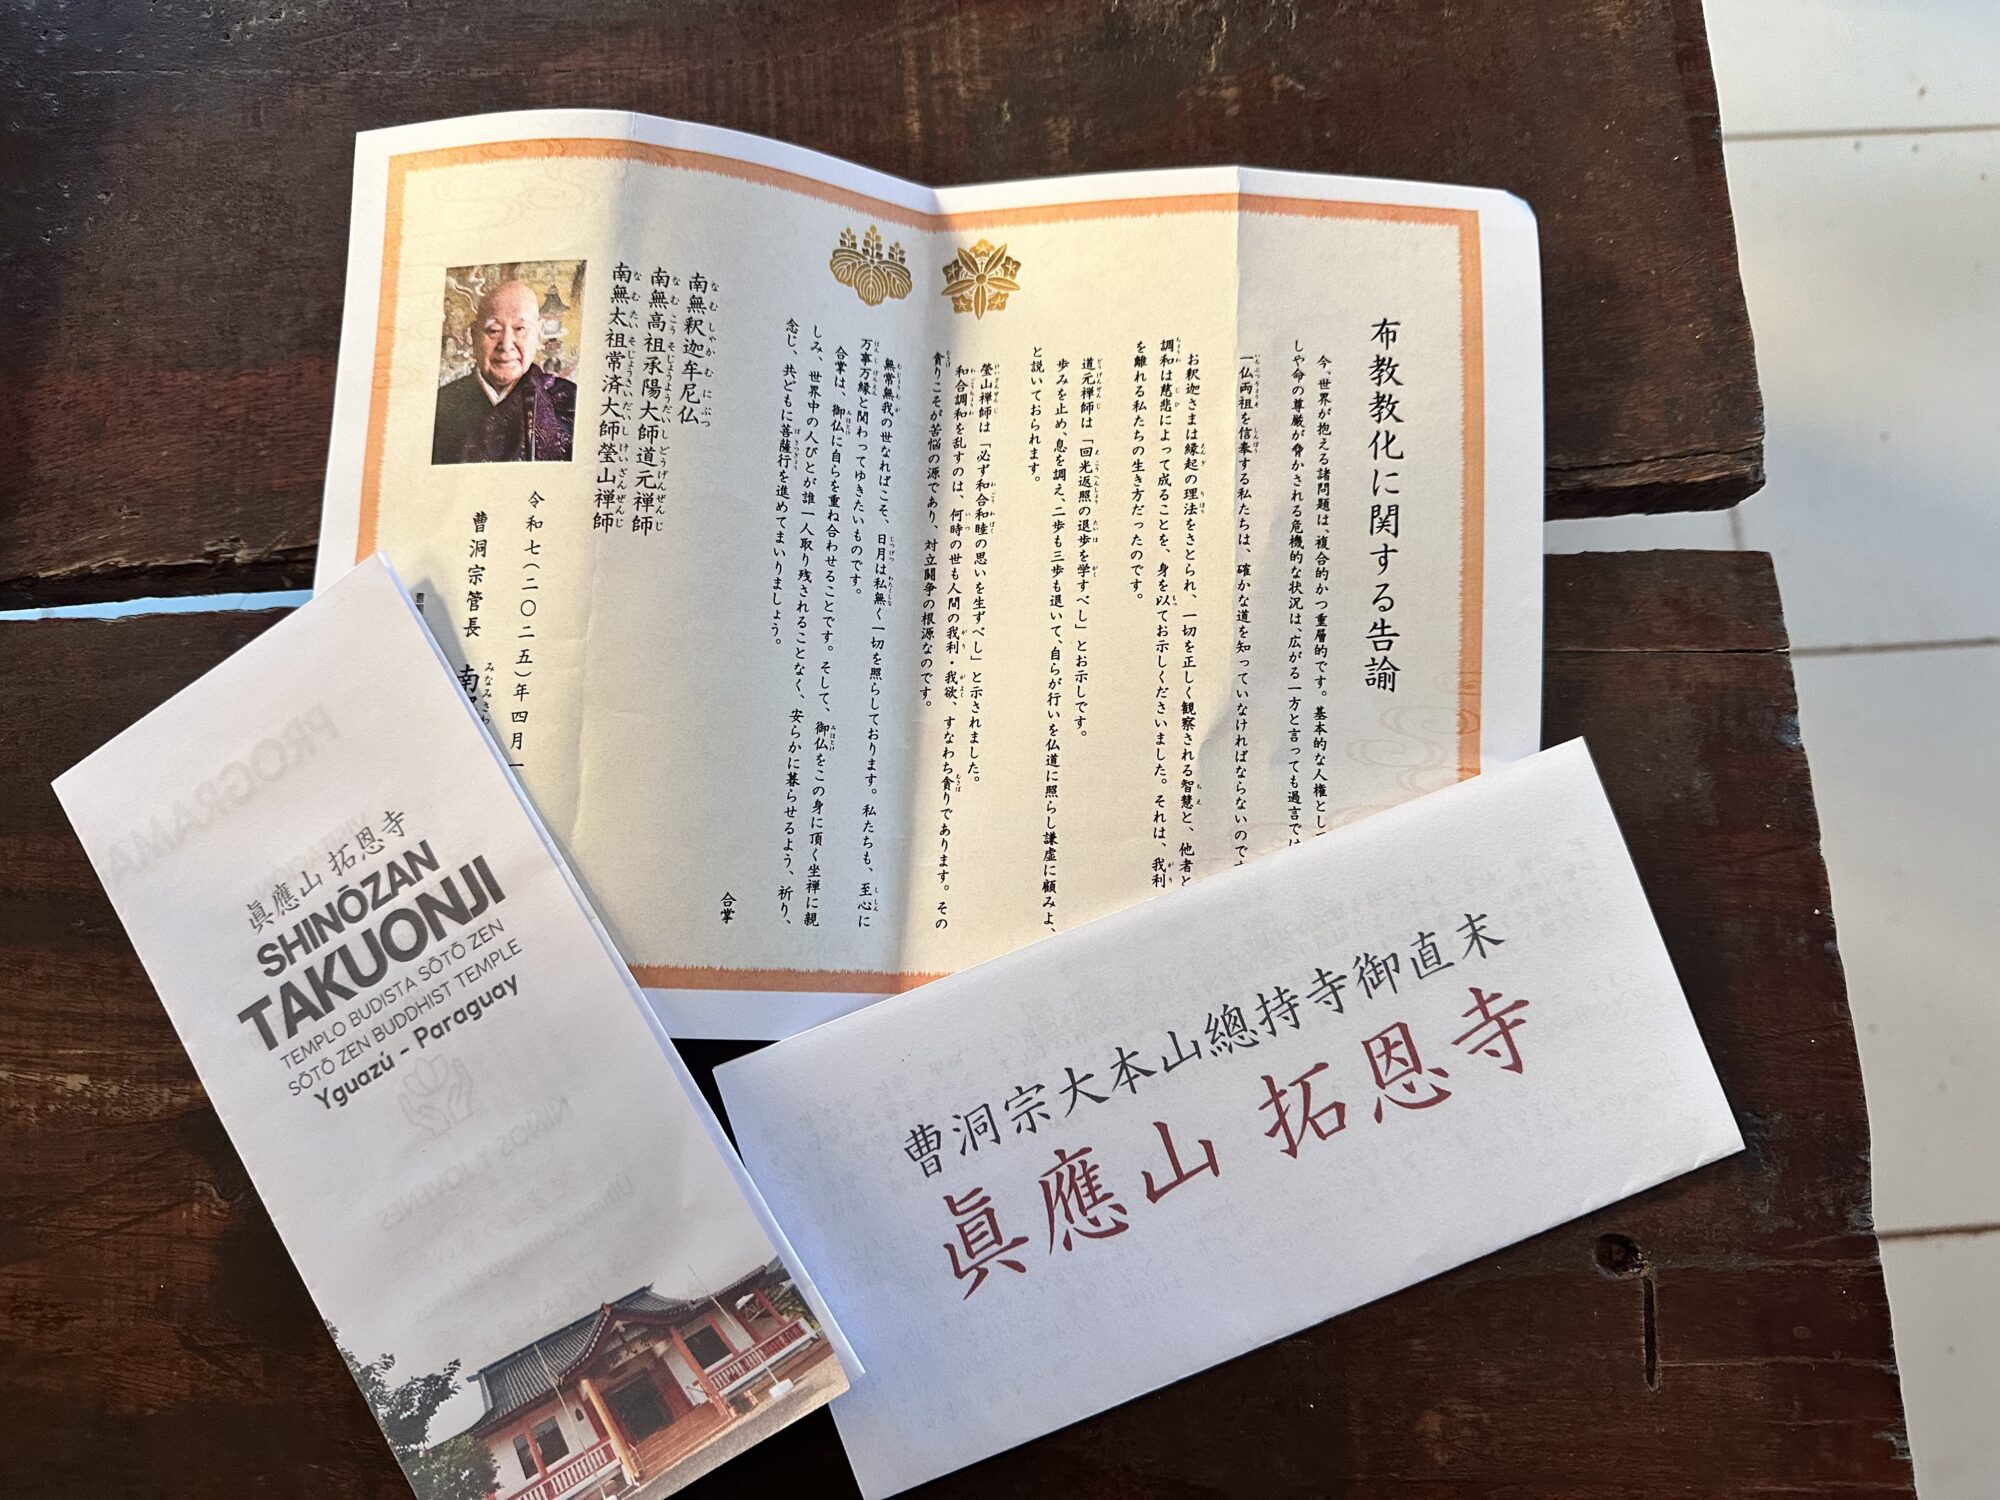 布教教化に関する告諭
今、世界が抱える諸問題は、複合的かつ重層的です。基本的な人権として
しや命の尊厳が脅かされる危機的な状況は、広がる一方と言っても過言では
一仏両祖を信奉する私たちは、確かな道を知っていなければならないのです
お釈迦さまは縁起の理法をさとられ、一切を正しく観察される智慧と、他者と
調和は慈悲によって成ることを、身を以てお示しくださいました。それは、我利
を離れる私たちの生き方だったのです。
道元禅師は「回光返照の退歩を学すべし」とお示しです。
歩みを止め、息を調え、二歩も三歩も退いて、自らが行いを仏道に照らし謙虚に顧みよ、
と説いております。
瑩山禅師は「必ず和合和睦の思いを生ずべし」と示されました。
和合調和を乱すのは、何時の世も人間の我利・我欲、すなわち貪りであります。その
貪りこそが苦悩の源であり、対立闘争の根源なのです。
無常無我の世なればこそ、日月は私無く一切を照らしております。私たちも、至心に
万事万縁と関わってゆきたいものです。
合掌は、御仏に自らを重ね合わせることです。そして、御仏をこの身に頂く坐禅に親
しみ、世界中の人びとが誰一人取り残されることなく、安らかに暮らせるよう、祈り、
念じ、共どもに菩薩行を進めてまいりましょう。
合掌
南無釈迦牟尼仏
南無高祖承陽大師道元禅師
南無太祖常済大師瑩山禅師
令和七(二〇二五)年四月一
曹洞宗管長 南
眞應山 拓恩寺
SHINŌZAN
TAKUONJI
TEMPLO BUDISTA SŌTŌ ZEN
SŌTŌ ZEN BUDDHIST TEMPLE
Yguazú - Paraguay
曹洞宗大本山總持寺御直末
眞應山 拓恩寺